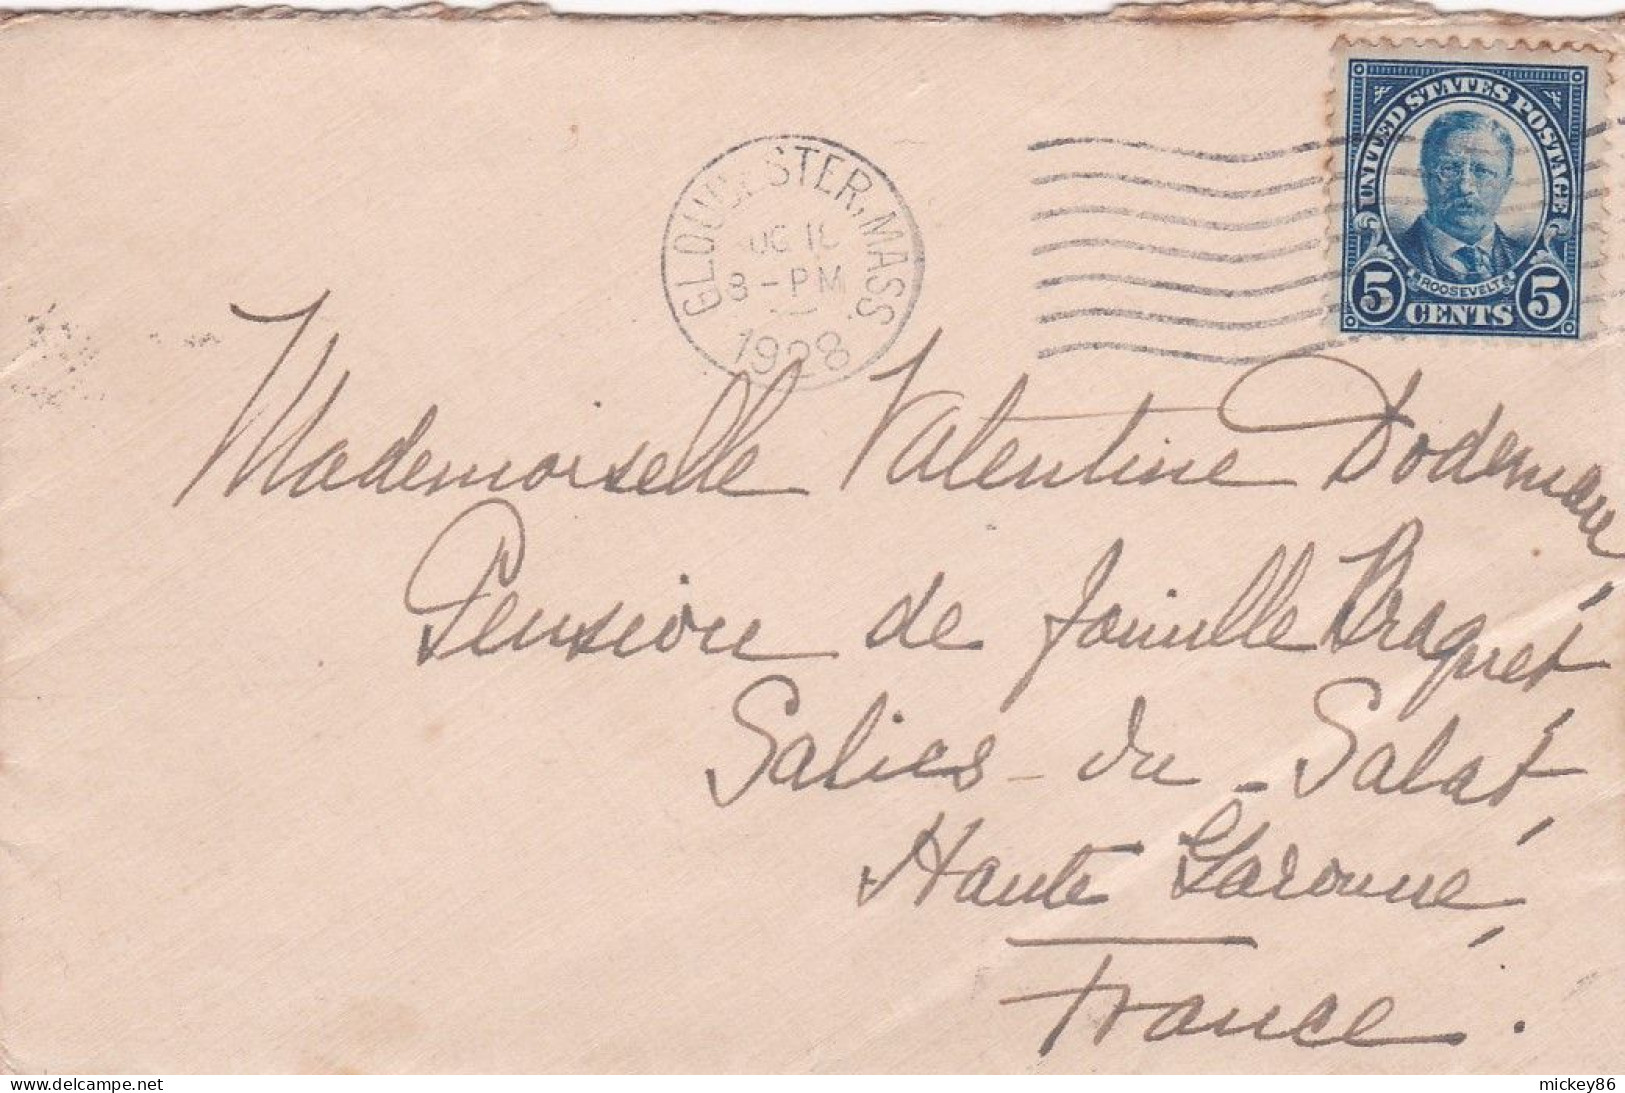 GLOUCESTER, MASS.
8-PM
1928
UNITED STATES POSTAGE
ROOSEVELT
5 CENTS 5
Mademoiselle Valentine
Pension de famille
Salies-du-Salat,
Haute Garonne,
France.
delcampe.net
mickey86